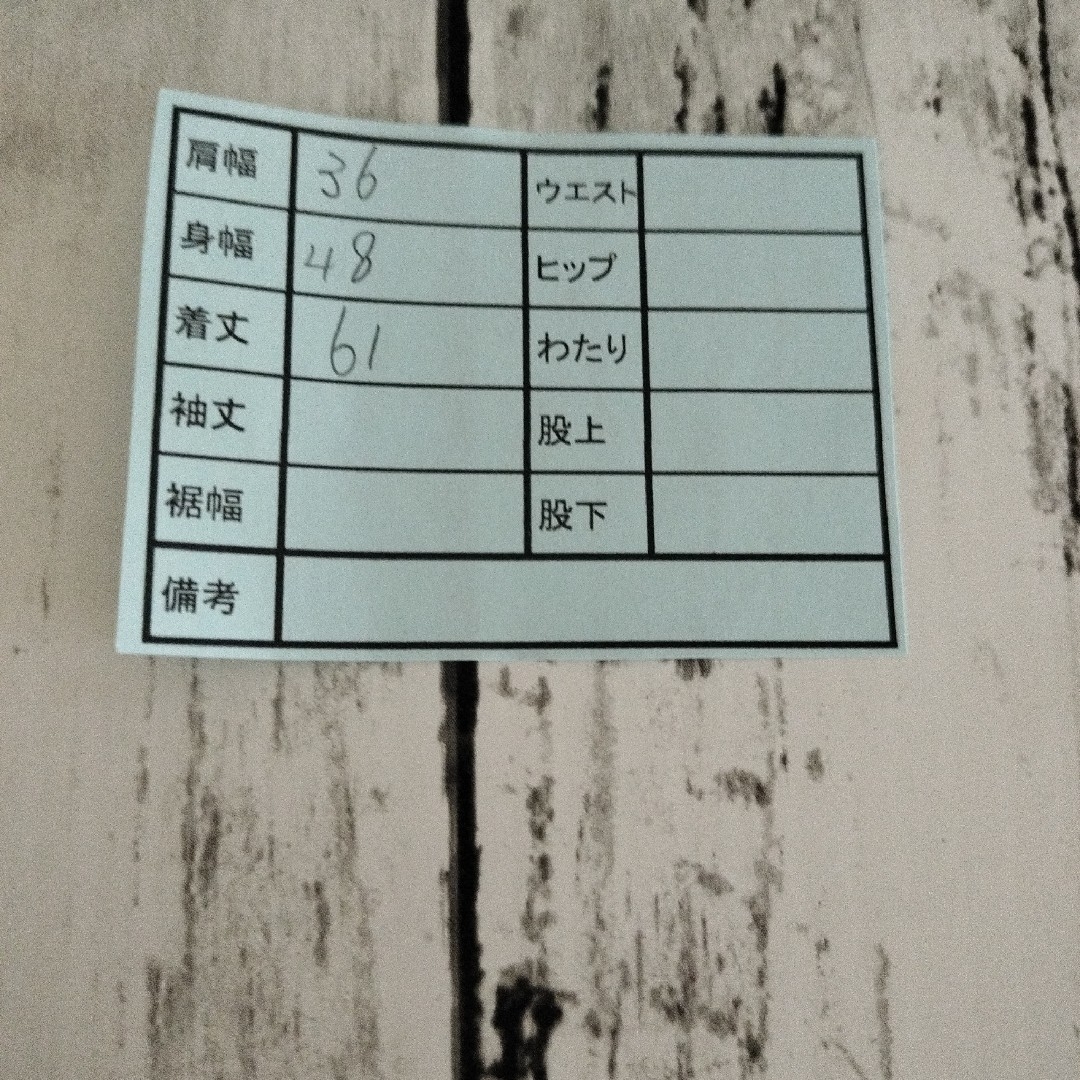 肩幅 36 ウエスト
身幅 48 ヒップ
着丈 61 わたり
袖丈 股上
裾幅 股下
備考